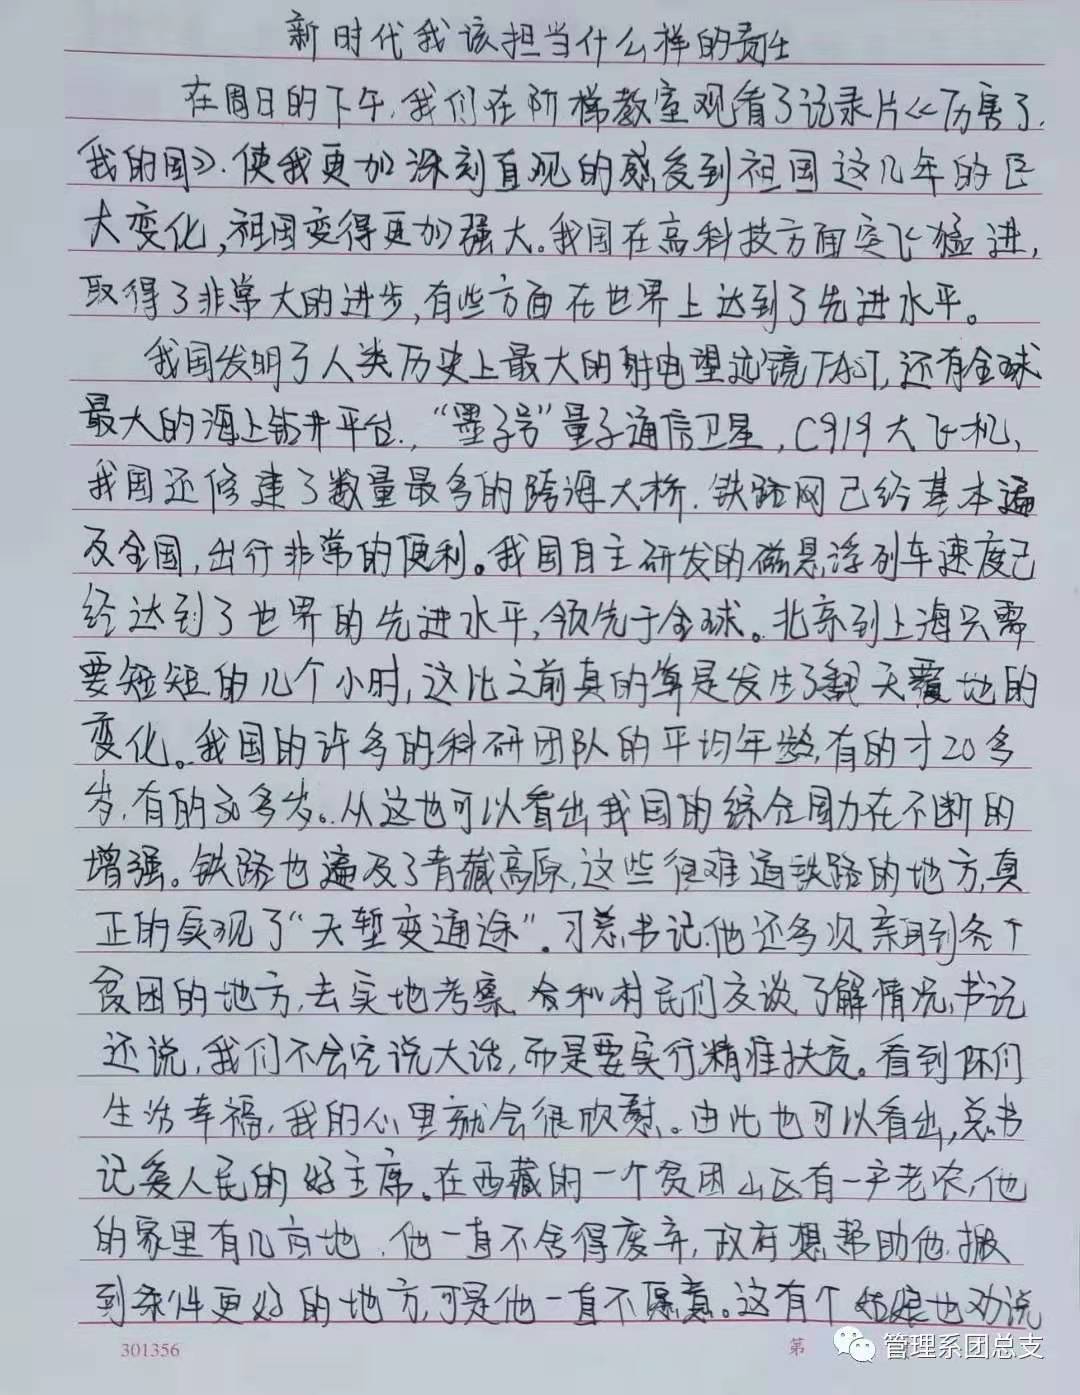 新时代我该担当什么样的责任
在周日的下午,我们在阶梯教室观看了记录片《厉害了,
我的国》.使我更加深刻直观的感受到祖国这几年的巨
大变化,祖国变得更加强大。我国在高科技方面突飞猛进,
取得了非常大的进步,有些方面在世界上达到了先进水平。
我国发明了人类历史上最大的射电望远镜FAST,还有全球
最大的海上钻井平台.,“墨子号”量子通信卫星,C919大飞机,
我国还修建了数量最多的跨海大桥.铁路网已经基本遍
及全国,出行非常的便利。我国自主研发的磁悬浮列车速度已
经达到了世界的先进水平,领先于全球。北京到上海只需
要短短的几个小时,这比之前真的算是发生了翻天覆地的
变化。我国的许多的科研团队的平均年龄,有的才20多
岁,有的30多岁。从这也可以看出我国的综合国力在不断的
增强。铁路也遍及了青藏高原,这些很难通铁路的地方,真
正的实现了“天堑变通途”.习总书记,他还多次亲自到各个
贫困的地方,去实地考察,会和村民们交谈了解情况,书记
还说,我们不会空说大话,而是要实行精准扶贫。看到你们
生活幸福,我的心里就会很欣慰。由此也可以看出,总书
记爱人民的好主席。在西藏的一个贫困山区有一户老农,他
的家里有几亩地.他一直不舍得废弃,政府想帮助他,搬
到条件更好的地方,可是他一直不愿意。这有个姑娘也劝说
301356
第
管理系团总支